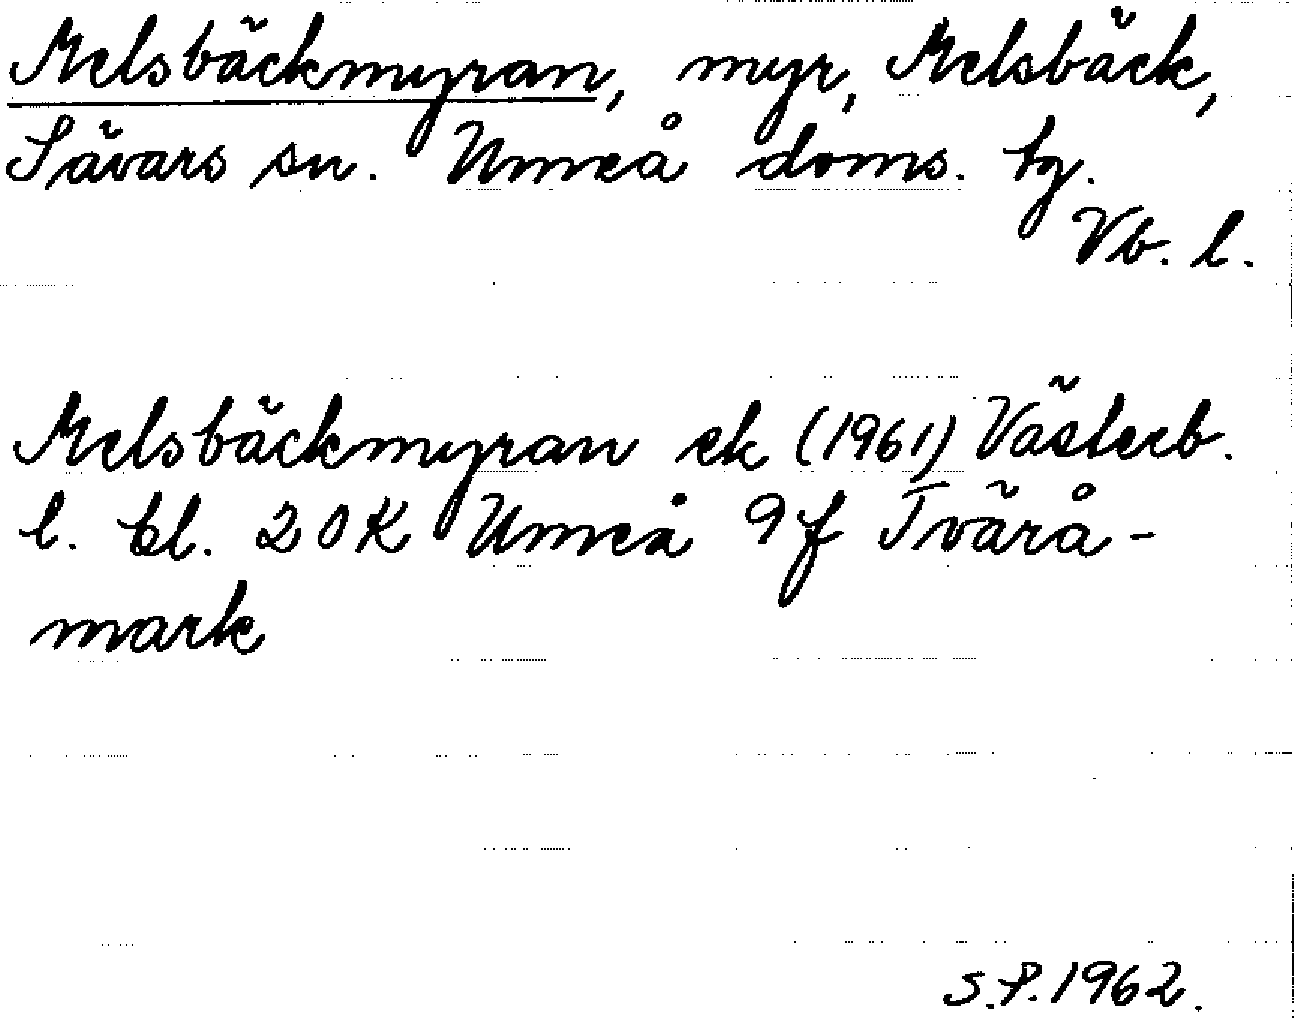 Melsbäckmyran, myr, Melsbäck,
Sävars sn. Umeå doms. tg.
Vb. l.
Melsbäckmyran ek (1961) Västerb.
l. bl. 20K Umeå 9f Tvärå-
mark
S.P. 1962.